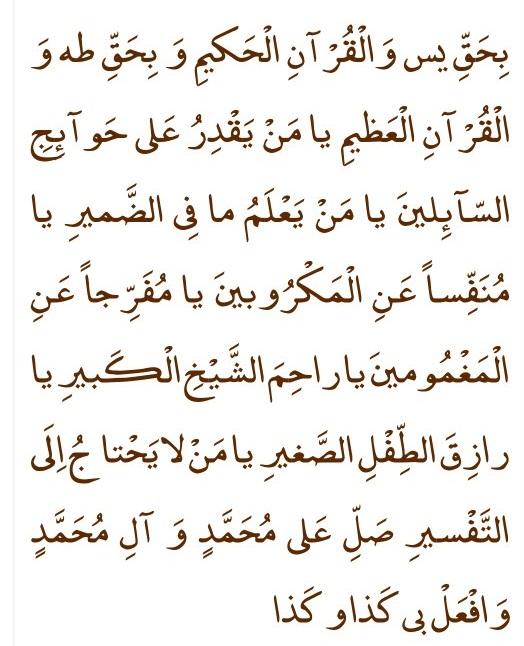 بِحَقِّ يس وَ الْقُرْآنِ الْحَكيمِ وَ بِحَقِّ طه وَ
الْقُرْآنِ الْعَظيمِ يا مَنْ يَقْدِرُ عَلى حَوآئِجِ
السّآئِلينَ يا مَنْ يَعْلَمُ ما فِى الضَّميرِ يا
مُنَفِّساً عَنِ الْمَكْرُوبينَ يا مُفَرِّجاً عَنِ
الْمَغْمُومينَ يا راحِمَ الشَّيْخِ الْكَبيرِ يا
رازِقَ الطِّفْلِ الصَّغيرِ يا مَنْ لا يَحْتاجُ اِلَى
التَّفْسيرِ صَلِّ عَلى مُحَمَّدٍ وَ آلِ مُحَمَّدٍ
وَ افْعَلْ بى كَذا و كَذا